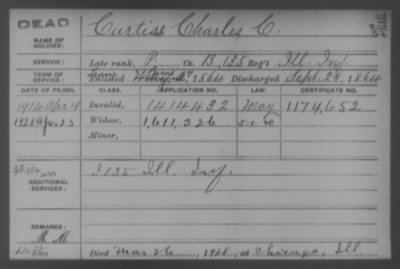 DEAD
NAME OF SOLDIER: Curtiss Charles C.
SERVICE: Late rank, P. Co. B, 135 Reg't Ill. Inf.
TERM OF SERVICE: Enlisted May 1864 Discharged Sept. 28, 1864
DATE OF FILING. CLASS. APPLICATION NO. LAW. CERTIFICATE NO.
1914 Apr 18 Invalid, 1414432 May 1174,652
1928 Apr 23 Widow, 1,611,326 5-1-20
Minor,
ADDITIONAL SERVICES: I 135 Ill. Inf.
REMARKS:
Died Mar 26, 1928, at Chicago, Ill.